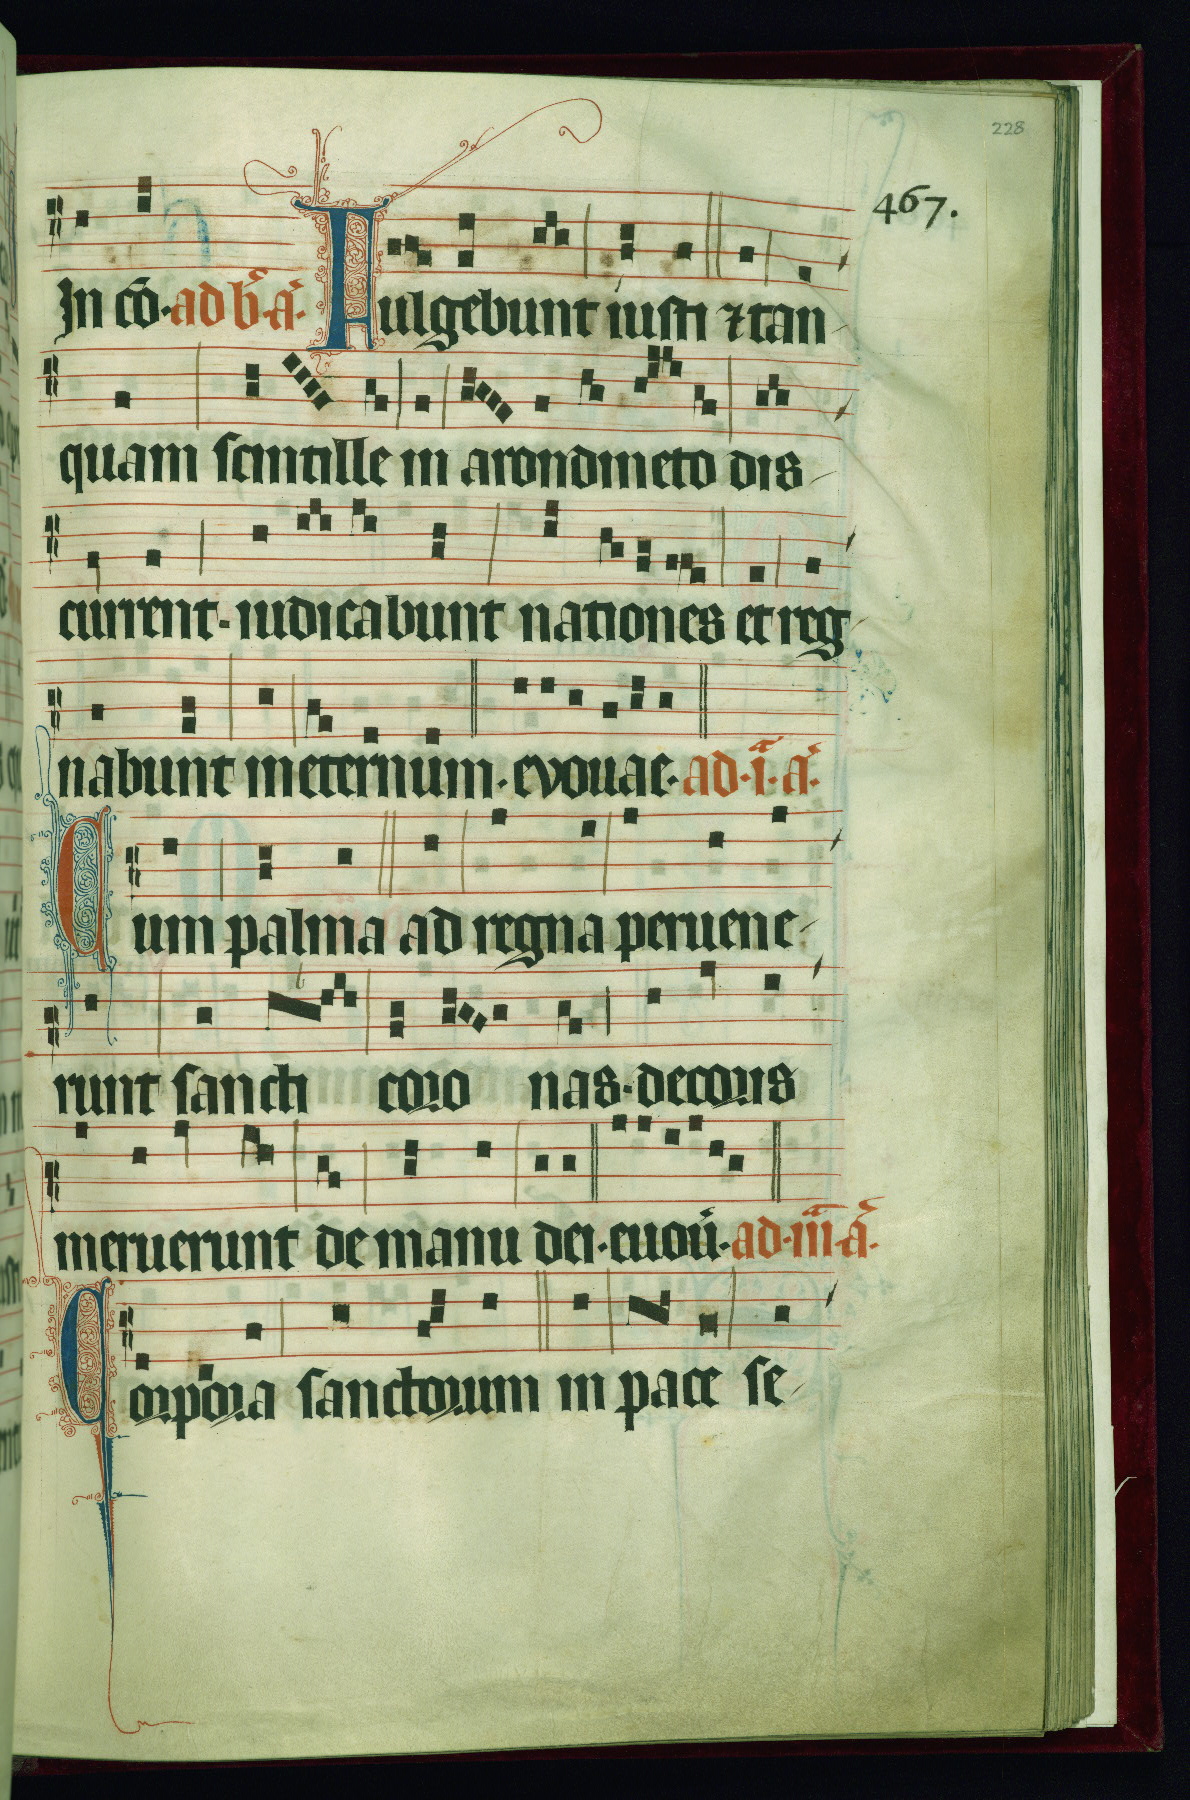 228
467.
In cō· ad b̄· a̕· Fulgebunt iusti ⁊ tan
quam scintille in arondineto dis
current· iudicabunt nationes et reg
nabunt ineternum· evouae· ad· i͛· a̕·
Cum palma ad regna peruene
runt sancti coro nas· decoris
meruerunt de manu dei· euou̕· ad· iii̅· a̕·
Corpora sanctorum in pace se